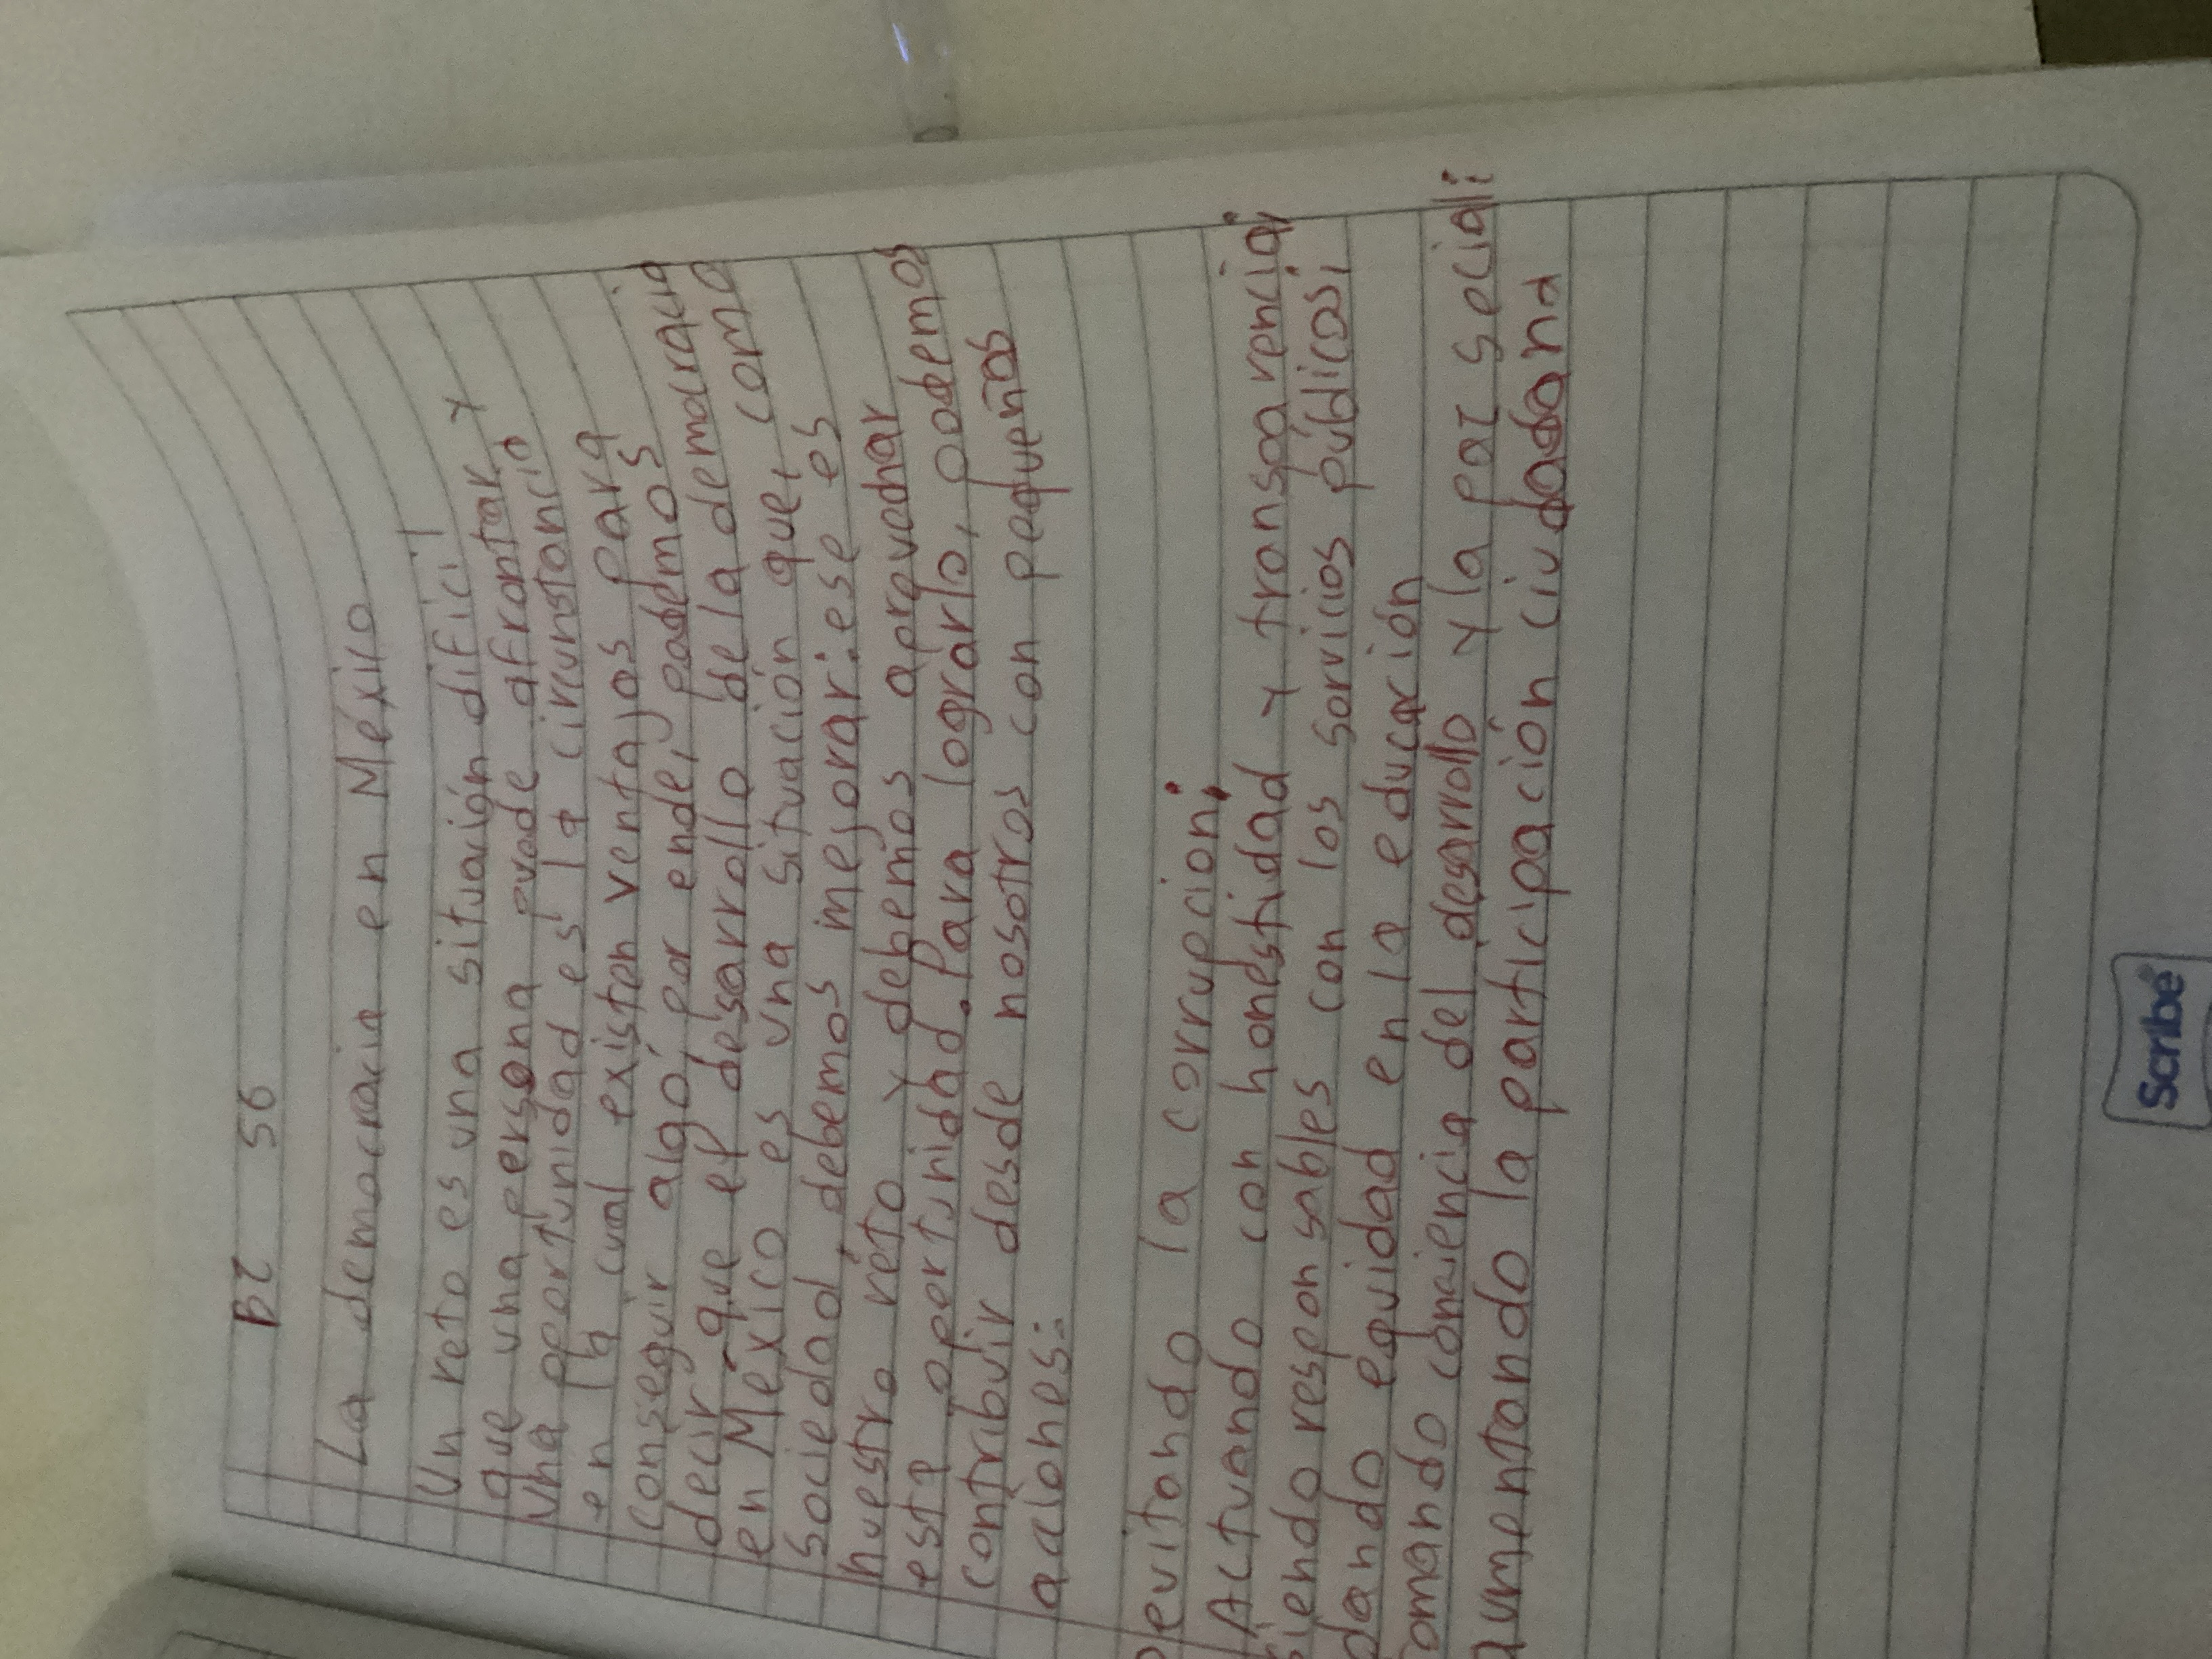 B2 S6
La democracia en México
Un reto es una situación difícil
que una persona puede afrontar y
una oportunidad es la circunstancia
en la cual existen ventajas para
conseguir algo, por ende, podemos
decir que el desarrollo de la democracia
en México es una situación que, como
sociedad, debemos mejorar: ese es
nuestro reto y debemos aprovechar
esta oportunidad. Para lograrlo, podemos
contribuir desde nosotros con pequeñas
aciones:
evitando la corrupcion;
Actuando con honestidad y transparencia;
iendo responsables con los servicios públicos;
dando equidad en la educación
omando conciencia del desarrollo y la paz social;
aumentando la participación ciudadana
Scribe